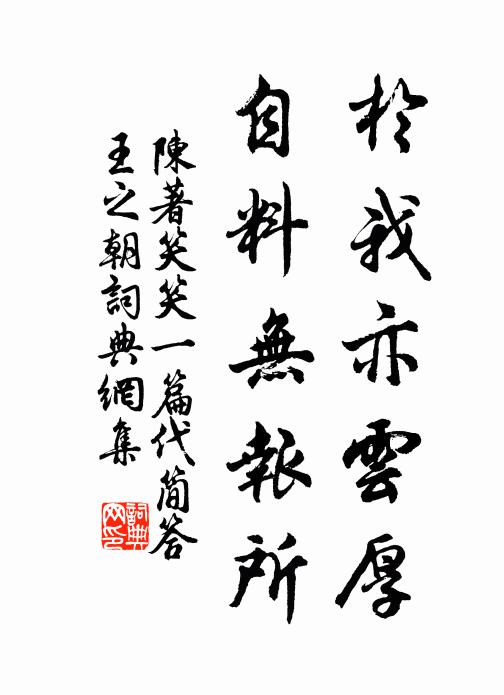 於我亦雲厚
自料無報所
陳著笑笑一篇代簡答
王之朝詞典網集
詞典
网印